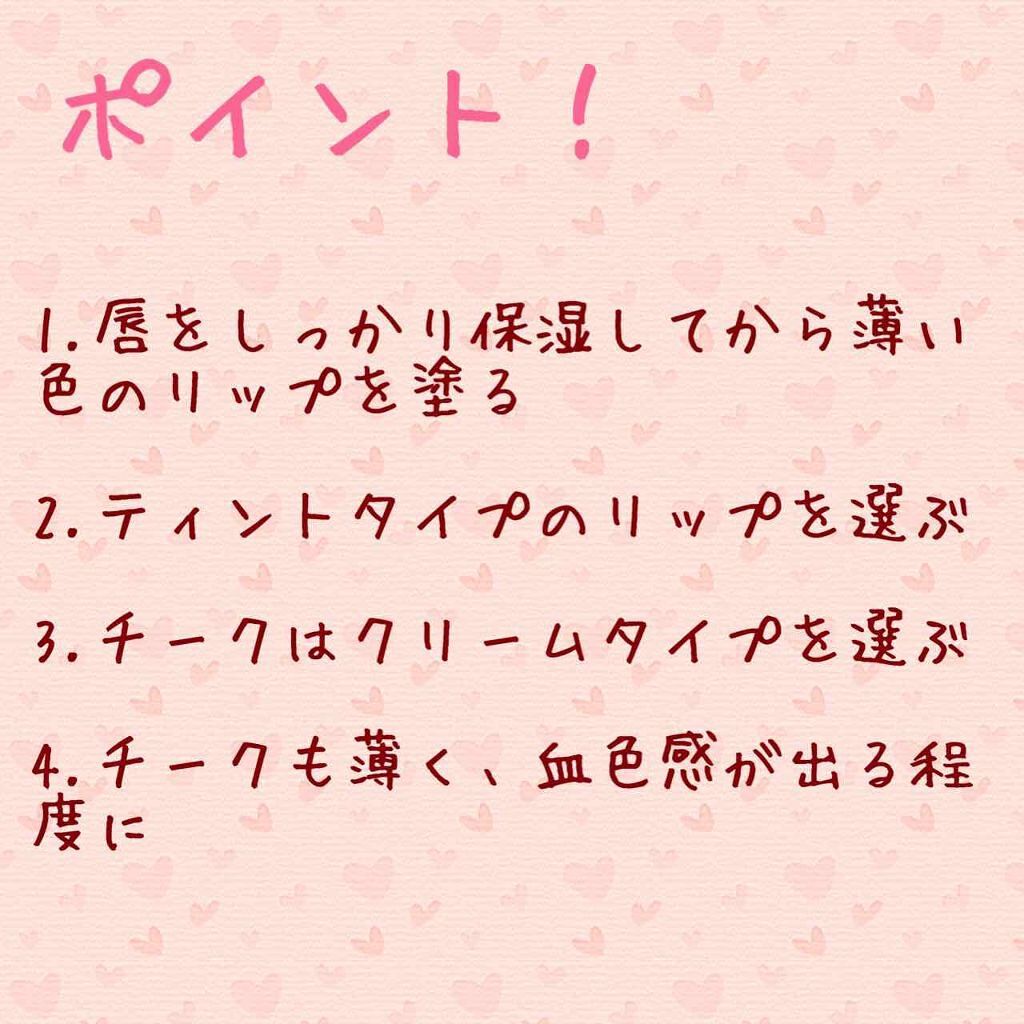 ポイント!
1.唇をしっかり保湿してから薄い
色のリップを塗る
2.ティントタイプのリップを選ぶ
3.チークはクリームタイプを選ぶ
4.チークも薄く、血色感が出る程
度に